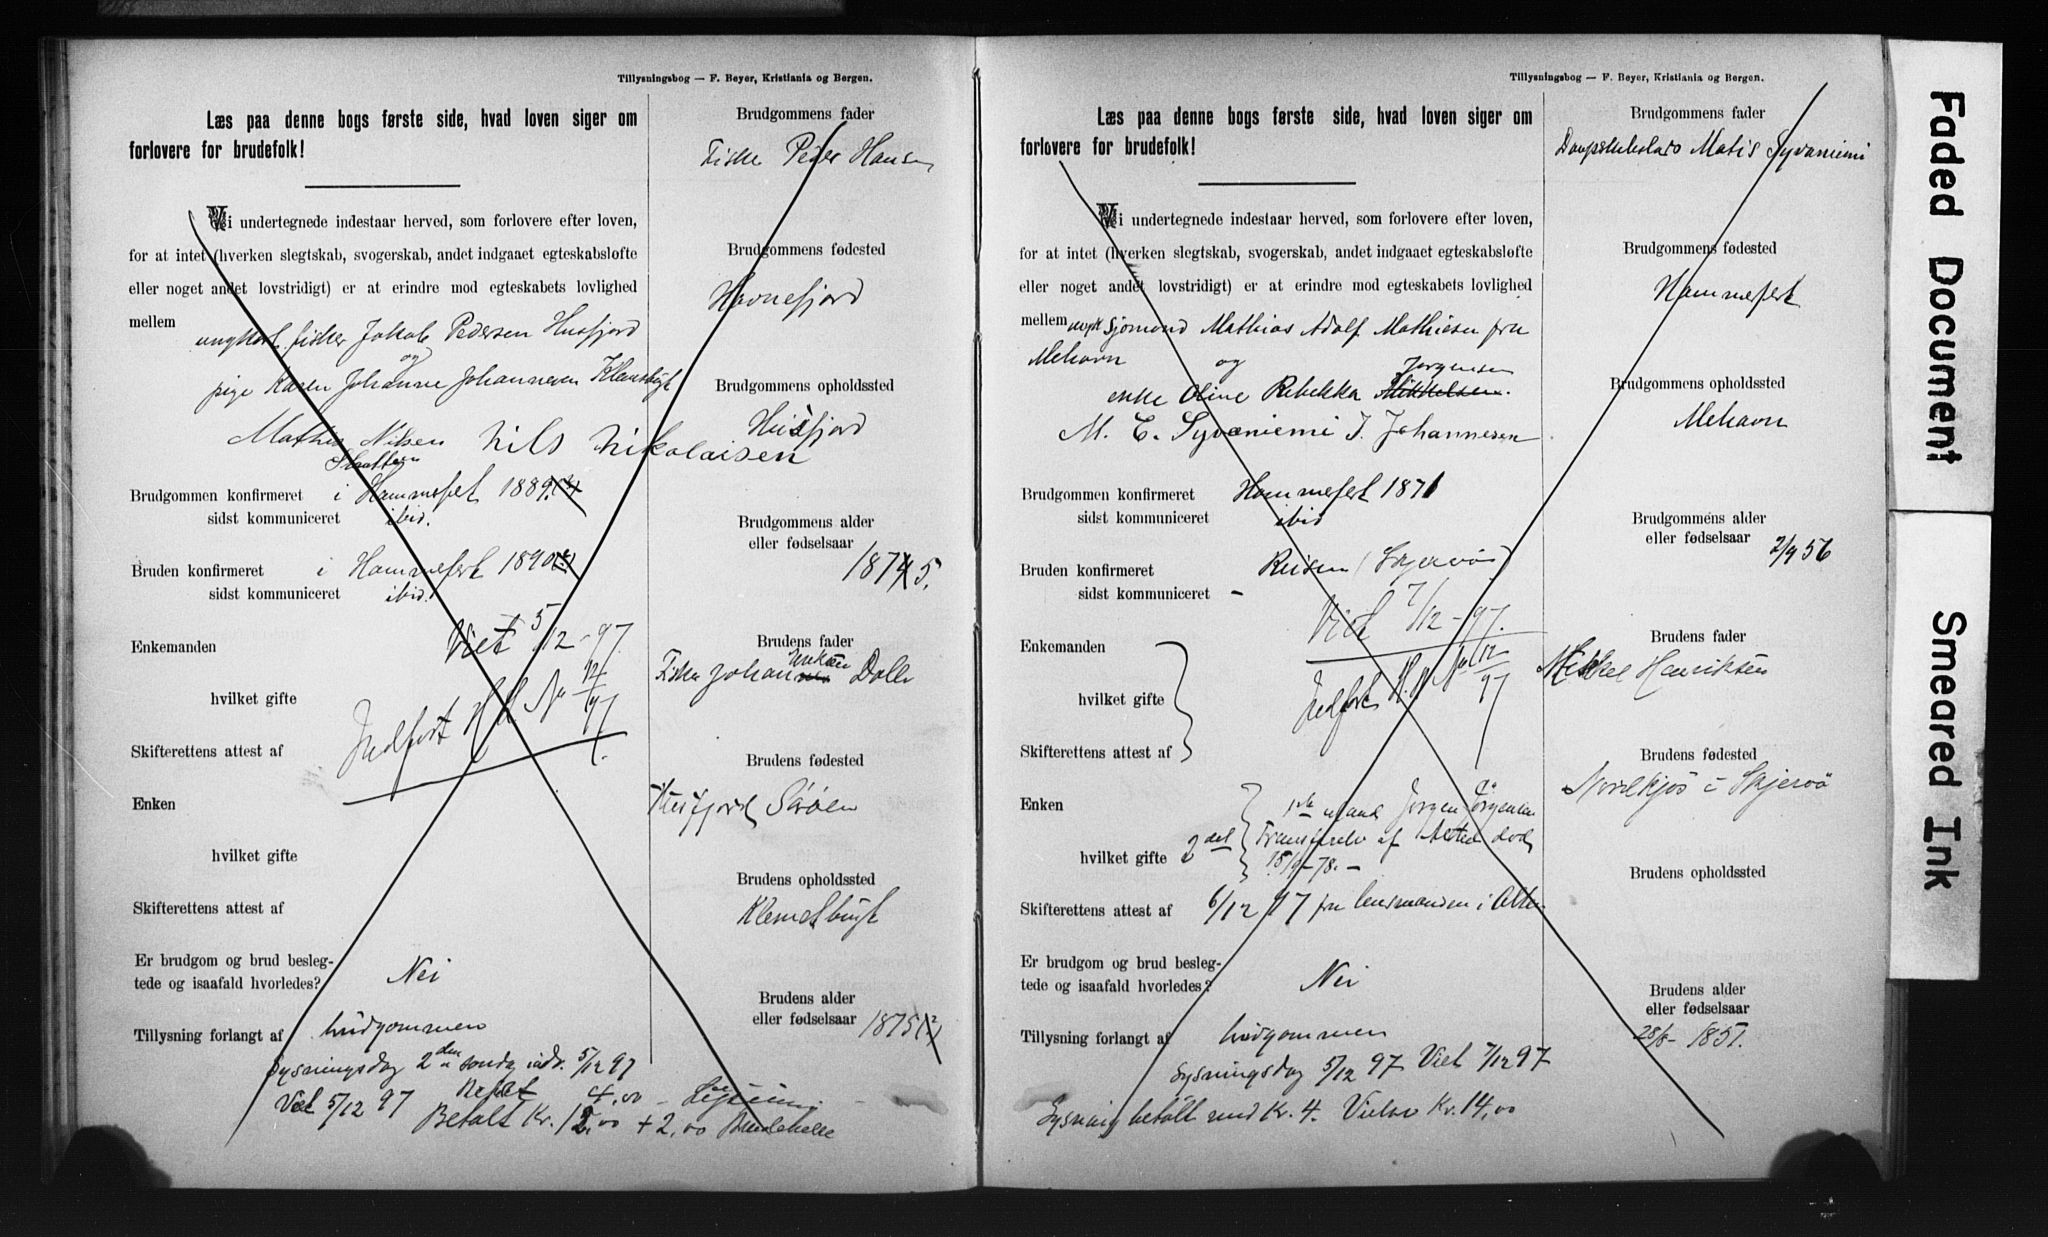 Tillysningsbog — F. Beyer, Kristiania og Bergen.
Læs paa denne bogs første side, hvad loven siger om
forlovere for brudefolk!
Vi undertegnede indestaar herved, som forlovere efter loven,
for at intet (hverken slegtskab, svogerskab, andet indgaaet egteskabsløfte
eller noget andet lovstridigt) er at erindre mod egteskabets lovlighed
mellem
ungkarl fisker Jakob Pedersen Husfjord
og
pige Karen Johanne Johannesen Klemetbugt
Mathis Nilsen Nils Nikolaisen
Brudgommen konfirmeret i Hammerfest 1889
sidst kommuniceret ibid.
Bruden konfirmeret i Hammerfest 1890
sidst kommuniceret ibid.
Viet 5/12-97.
Enkemanden
hvilket gifte
Indført
Skifterettens attest af
Enken
hvilket gifte
Skifterettens attest af
Er brudgom og brud besleg-
tede og isaafald hvorledes? Nei
Tillysning forlangt af brudgommen
Lysningsdag 2den sondag i adv. 5/12 97
Viet 5/12 97 4,00
Betalt Kr. 12,00 + 2,00
Brudgommens fader
Fisker Peder Hansen
Brudgommens fødested
Havnefjord
Brudgommens opholdssted
Husfjord
Brudgommens alder
eller fødselsaar
1875.
Brudens fader
Fisker Johan Dolk
Brudens fødested
Husfjord Sørøen
Brudens opholdssted
Klemetbugt
Brudens alder
eller fødselsaar 1875
Tillysningsbog — F. Beyer, Kristiania og Bergen.
Læs paa denne bogs første side, hvad loven siger om
forlovere for brudefolk!
Vi undertegnede indestaar herved, som forlovere efter loven,
for at intet (hverken slegtskab, svogerskab, andet indgaaet egteskabsløfte
eller noget andet lovstridigt) er at erindre mod egteskabets lovlighed
mellem ungk Sjømand Mathias Adolf Mathisen fra
Mehavn og
Jørgensen
enke Oline Rebekka Mikkelsen.
M. E. Syvaniemi J. Johannesen
Brudgommen konfirmeret Hammerfest 1871
sidst kommuniceret ibid
Bruden konfirmeret Reisen (Skjervø)
sidst kommuniceret -
Viet 7/12-97.
Enkemanden
hvilket gifte
Indført
Skifterettens attest af
Enken 1ste mand Jørgen Jørgensen
hvilket gifte 2det af død
15/9-78. -
Skifterettens attest af 6/12 97 fra lensmanden i Alten
Er brudgom og brud besleg-
tede og isaafald hvorledes? Nei
Tillysning forlangt af brudgommen
Lysningsdag 5/12 97 Viet 7/12 97
Lysning betalt med Kr. 4. Vielse Kr. 14,00
Brudgommens fader
Matis Syvaniemi
Brudgommens fødested
Hammerfest
Brudgommens opholdssted
Mehavn
Brudgommens alder
eller fødselsaar 2/9 56
Brudens fader
Mikkel Henriksen
Brudens fødested
Nordkjos i Skjervø
Brudens opholdssted
Brudens alder
eller fødselsaar
1851.
Faded Document
Smeared Ink